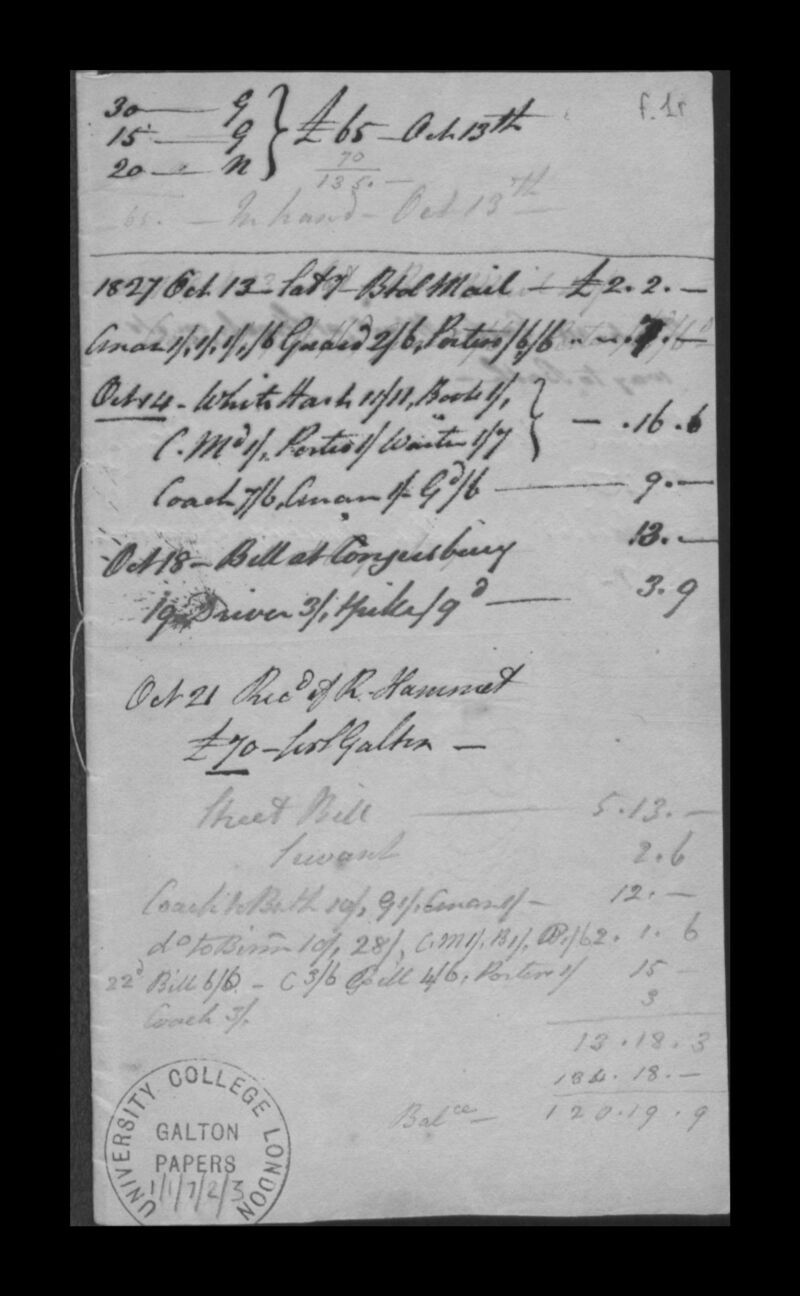 f. 1r
30 — G
15 — G } £65 — Oct. 13th
20 — N
70
135. —
65. — In hand — Oct 13th
1827 Oct. 13 — Mail — £2. 2. —
Cman 1/, 1/, 1/, /6 Guard 2/6, Porters /6/6 .7. —
Oct 14 — White Hart 11/11, Book 1/,
C. Md 1/, Porter 1/ Waiter 1/7 } — .16.6
Coach 7/6, Cman 1/- Gd /6 — 9. —
Oct 18 — Bill at Congersbury 13. —
19 Driver 3/, Pike /9d — 3. 9
Oct 21 Recd of R. Hammet
£70 — Galton —
Bill — 5. 13. —
Servant 2. 6
Coach to Bath 10/, G 1/. Cman 1/ — 12. —
do to Birm 10/, 28/, C. M 1/. B 1/, /6 2. 1. 6
22d Bill 6/6. — C 3/6 Bill 4/6, Porter 1/ 15 —
Coach 3/. 3
13. 18. 3
134. 18. —
Balce — 120. 19. 9
UNIVERSITY COLLEGE LONDON
GALTON
PAPERS
1/1/7/2/3